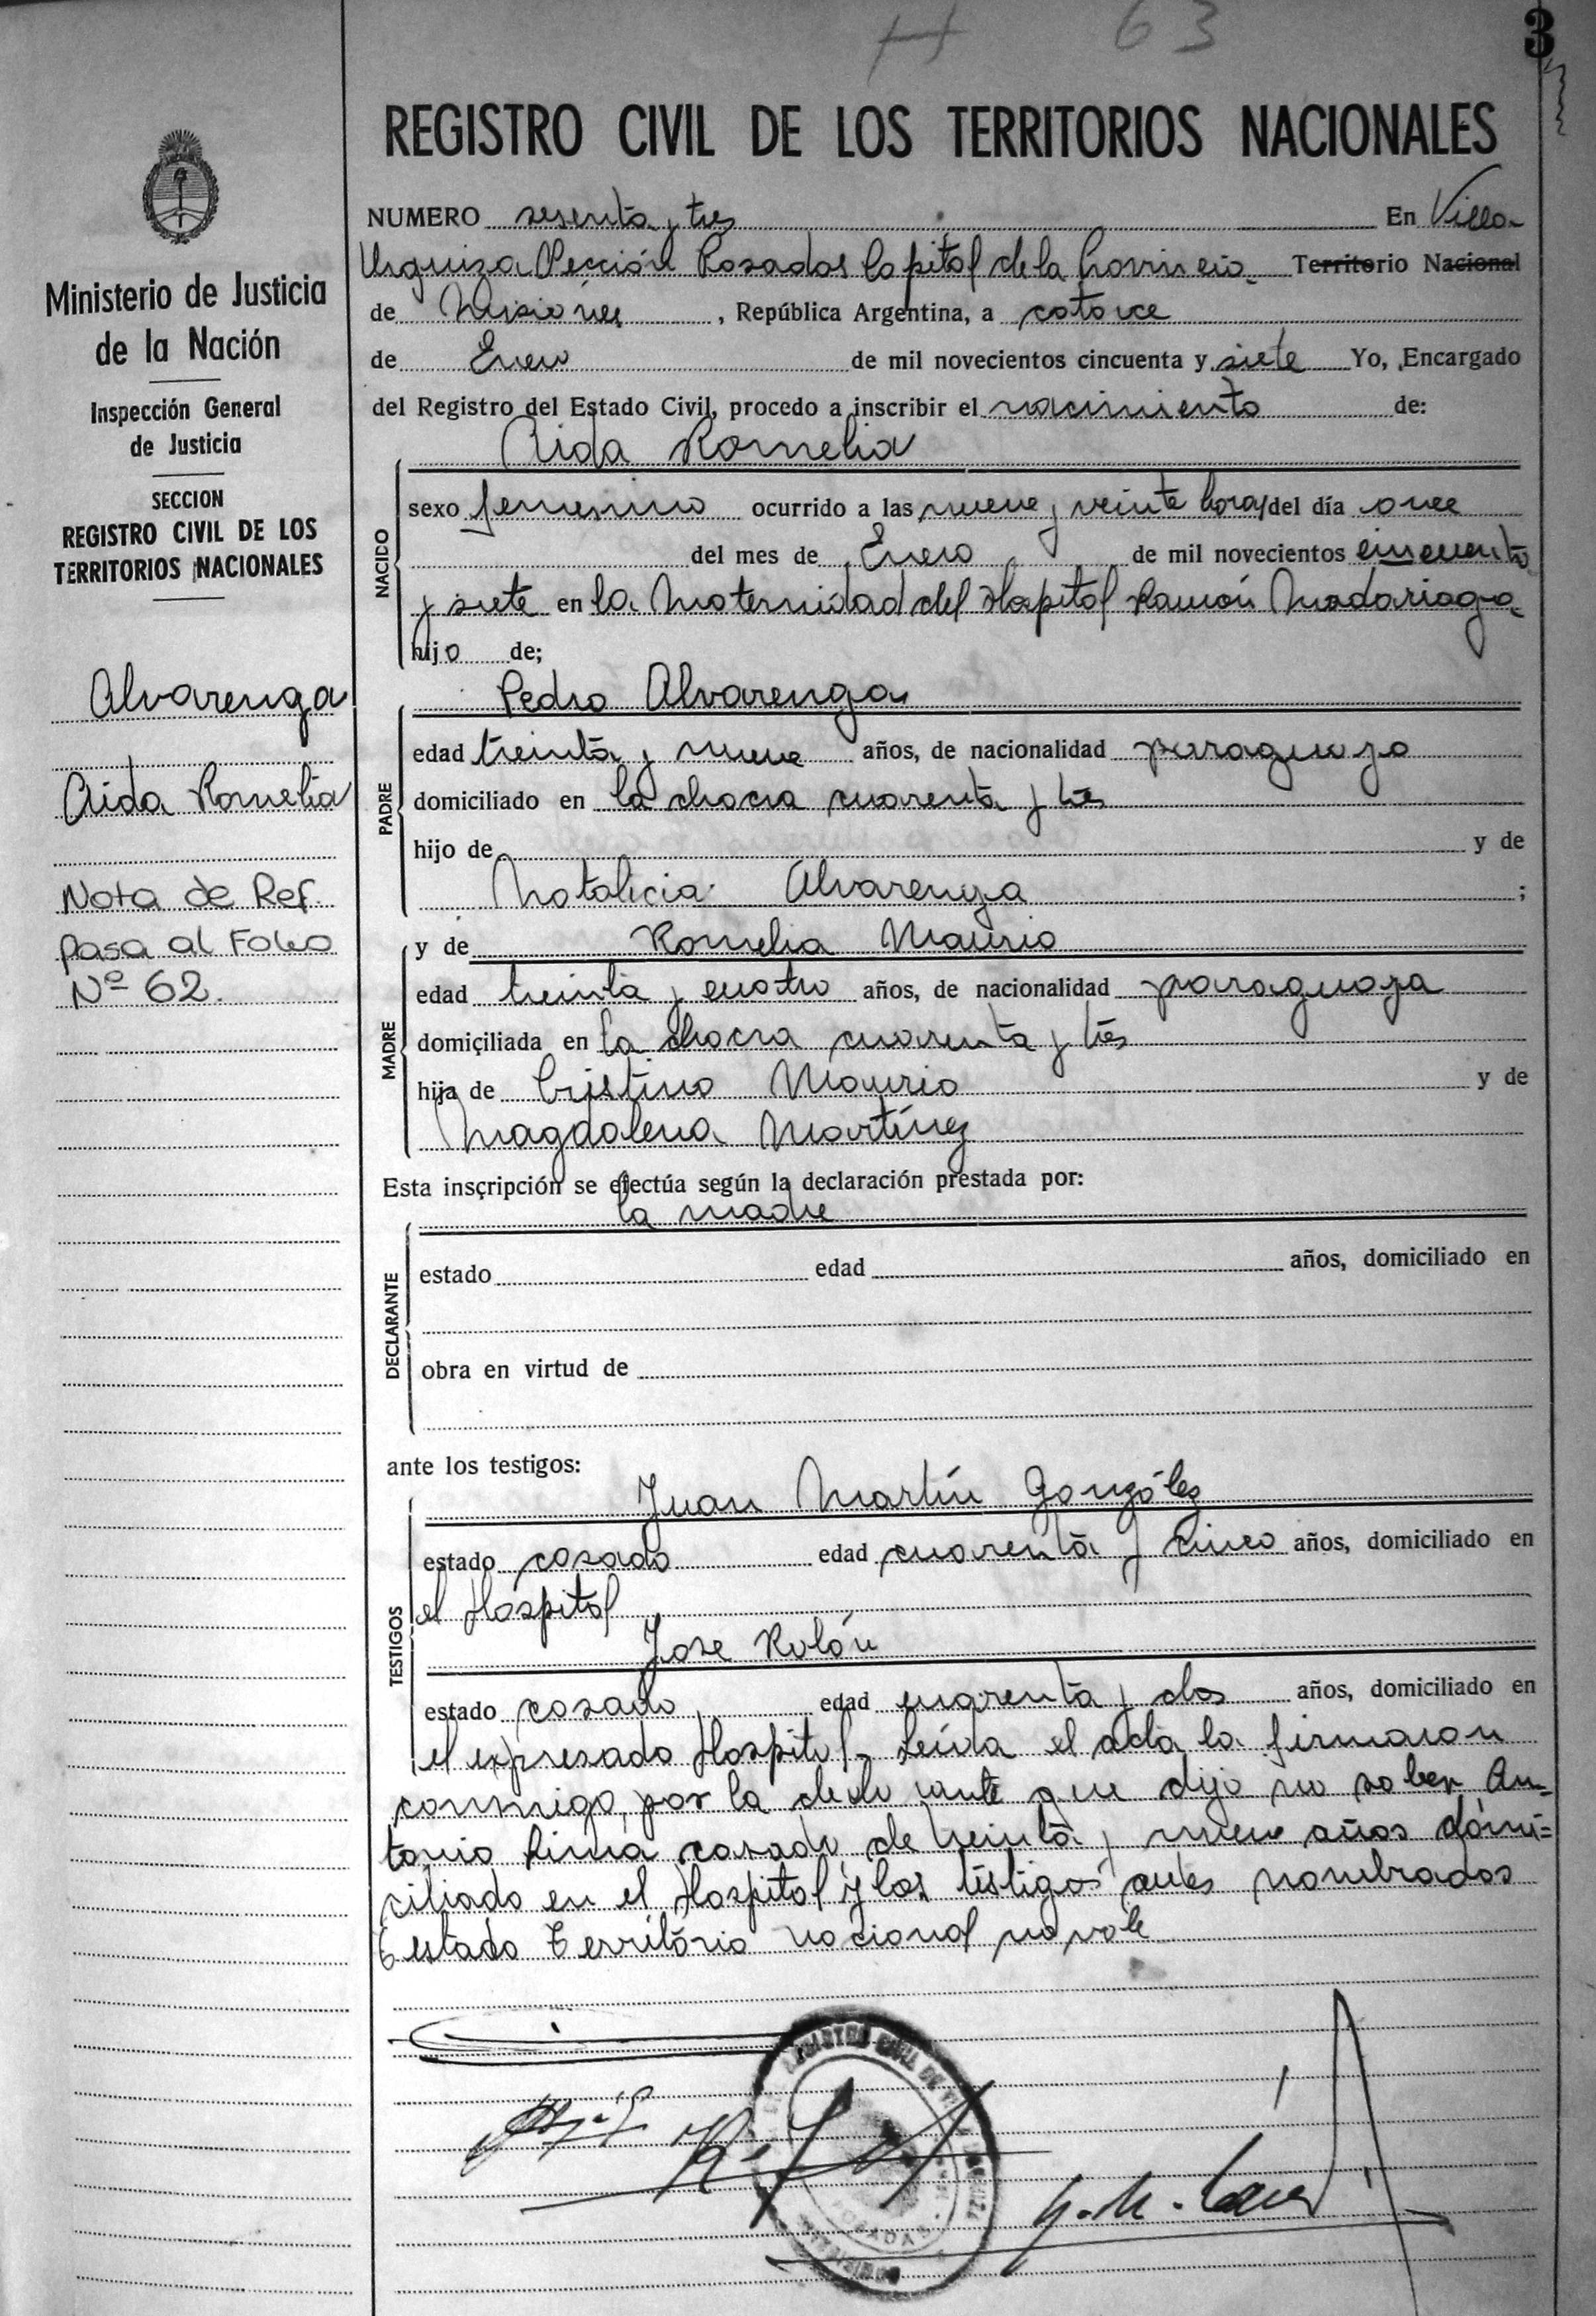 H 63 3
REGISTRO CIVIL DE LOS TERRITORIOS NACIONALES
NUMERO sesenta y tres En Villa
Urquiza Sección Posadas Capital de la Provincia Territorio Nacional
de Misiones, República Argentina, a catorce
de Enero de mil novecientos cincuenta y siete Yo, Encargado
del Registro del Estado Civil, procedo a inscribir el nacimiento de:
Aida Romelia
NACIDO
sexo femenino ocurrido a las nueve y veinte horas del día once
del mes de Enero de mil novecientos cincuenta
y siete en la Maternidad del Hospital Ramón Madariaga
hijo de;
PADRE
Pedro Alvarenga
edad treinta y nueve años, de nacionalidad paraguayo
domiciliado en la chacra cuarenta y tres
hijo de y de
Natalicia Alvarenga ;
MADRE
y de Romelia Maurio
edad treinta y cuatro años, de nacionalidad paraguaya
domiciliada en la chacra cuarenta y tres
hija de Cristino Maurio y de
Magdalena Martínez
Esta inscripción se efectúa según la declaración prestada por:
DECLARANTE
la madre
estado edad años, domiciliado en
obra en virtud de
ante los testigos:
TESTIGOS
Juan Martín Gonzáles
estado casado edad cuarenta y cinco años, domiciliado en
el Hospital
Jose Rolón
estado casado edad cuarenta y dos años, domiciliado en
el expresado Hospital. Leída el acta la firmaron
conmigo, por la declarante que dijo no saber An-
tonio casado de treinta y nueve años domi=
ciliado en el Hospital y los testigos antes nombrados
Testado Territorio nacional no vale
Ministerio de Justicia
de la Nación
Inspección General
de Justicia
SECCION
REGISTRO CIVIL DE LOS
TERRITORIOS NACIONALES
Alvarenga
Aida Romelia
Nota de Ref.
pasa al Folio
Nº 62.
REGISTRO CIVIL DE
POSADAS